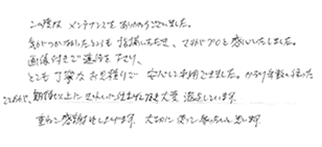 この度は メンテナンスを ありがとうございました。
気がつかなかったところも 指摘いただき、さすがプロと 感心いたしました。
画像付きで ご連絡を 下さり、
とても 丁寧な お見積りで 安心して利用できました。かなり年数も経った
ものが、期待以上に きれいに 仕上げて頂き 大変 満足しています。
重ねて 感謝 申し上げます。大切に 使って 参りたいと思います。